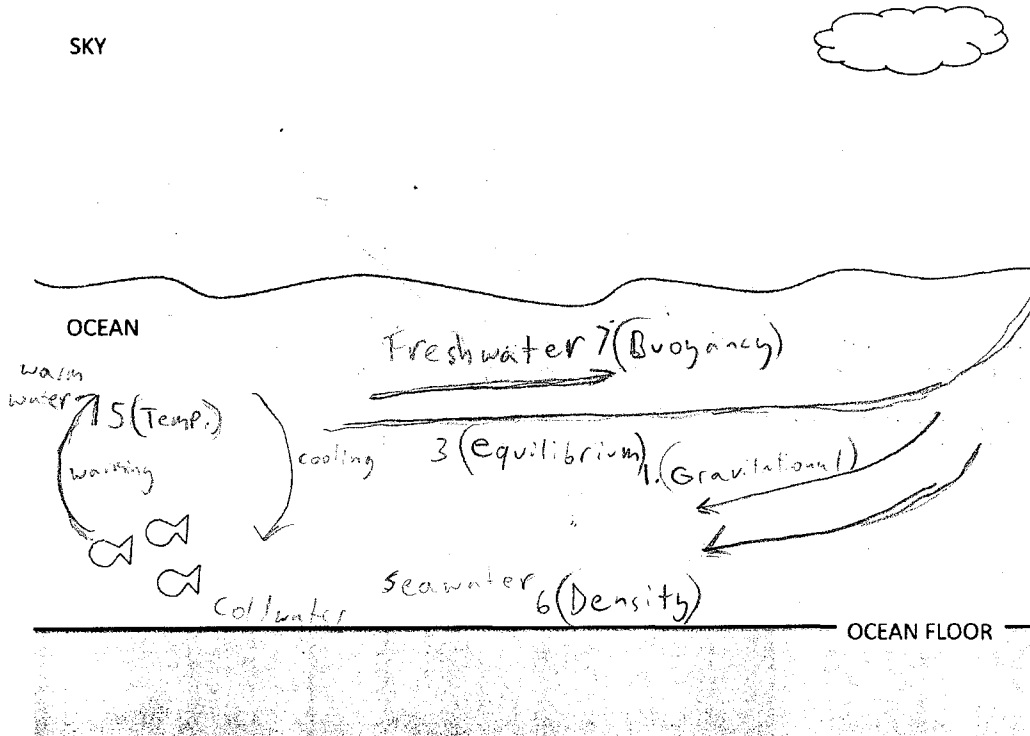 SKY
OCEAN
Freshwater 7(Buoyancy)
warm
water
5(Temp.)
warming
cooling
3(equilibrium)
1.(Gravitational)
seawater 6(Density)
Coldwater
OCEAN FLOOR